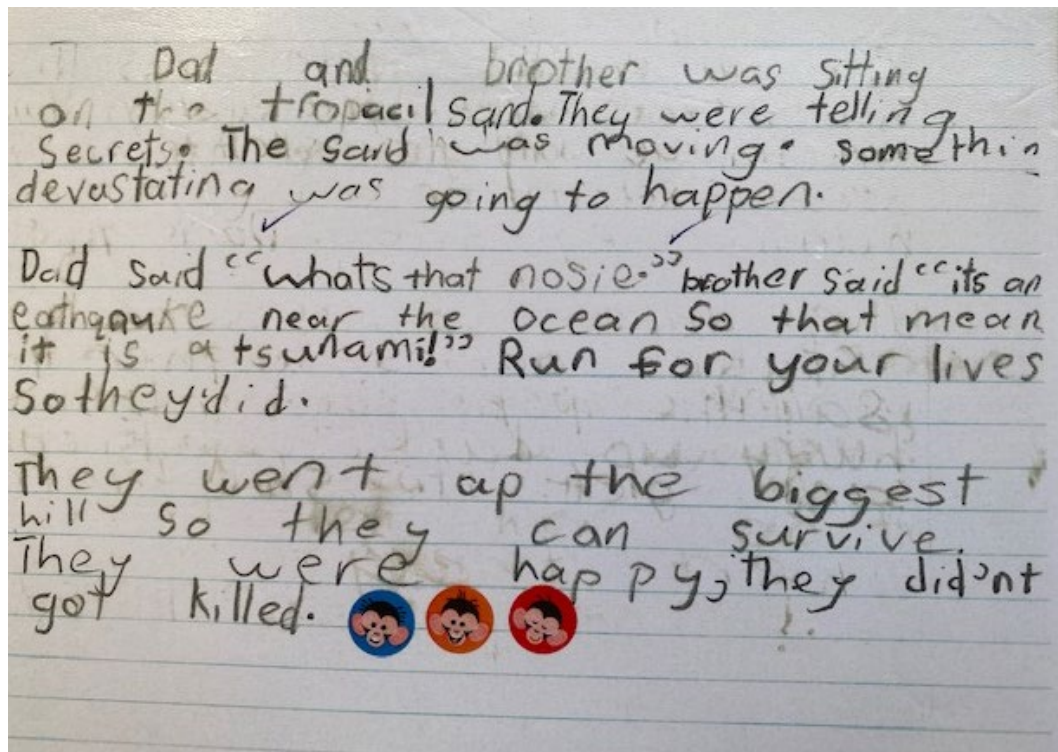 Dad and brother was sitting
on the tropacil sand. They were telling
Secrets. The sand was moving. somethin
devastating was going to happen.
Dad said “whats that nosie.” brother said “its an
earthqauke near the ocean So that mean
it is a tsunami!” Run for your lives
So they did.
They went ap the biggest
hill so they can survive.
They were happy, they did'nt
got killed.